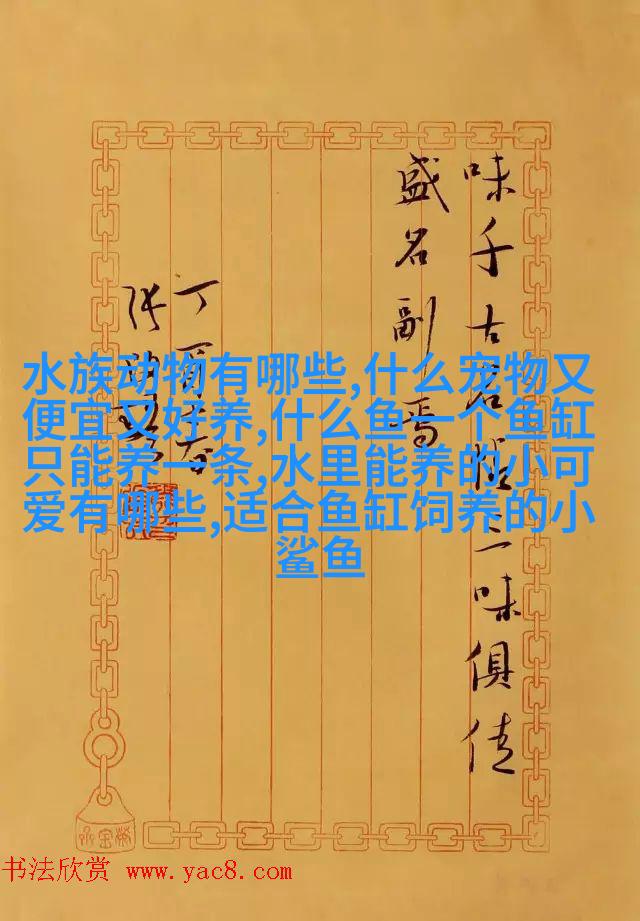 水族动物有哪些,什么宠物又
便宜又好养,什么鱼一个鱼缸
只能养一条,水里能养的小可
爱有哪些,适合鱼缸饲养的小
鲨鱼
味千古名味俱佳
盛名副焉
丁酉
张
书法欣赏 www.yac8.com